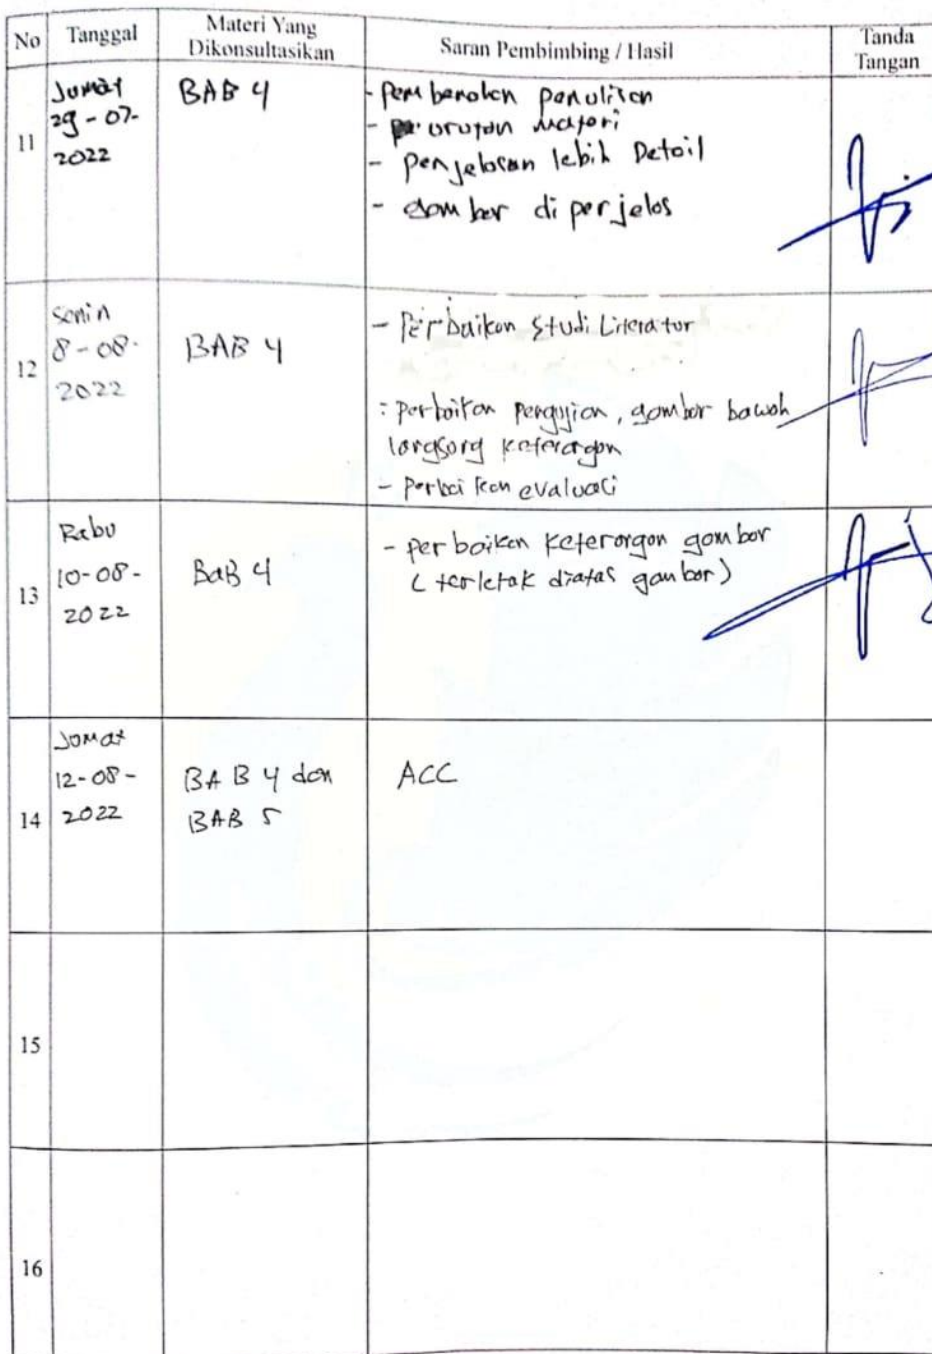 No Tanggal Materi Yang Dikonsultasikan Saran Pembimbing / Hasil Tanda Tangan
11
Jumat
29-07-
2022
BAB 4
- Pembenaran penulisan
- urutan materi
- penjelasan lebih Detail
- Gambar diperjelas
12
Senin
8-08-
2022
BAB 4
- Perbaikan Studi Literatur
- perbaikan pengujian, gambar bawah
langsung keterangan
- perbaikan evaluasi
13
Rabu
10-08-
2022
BaB 4
- perbaikan keterangan gambar
(terletak diatas gambar)
14
Jumat
12-08-
2022
BAB 4 dan
BAB 5
ACC
15
16